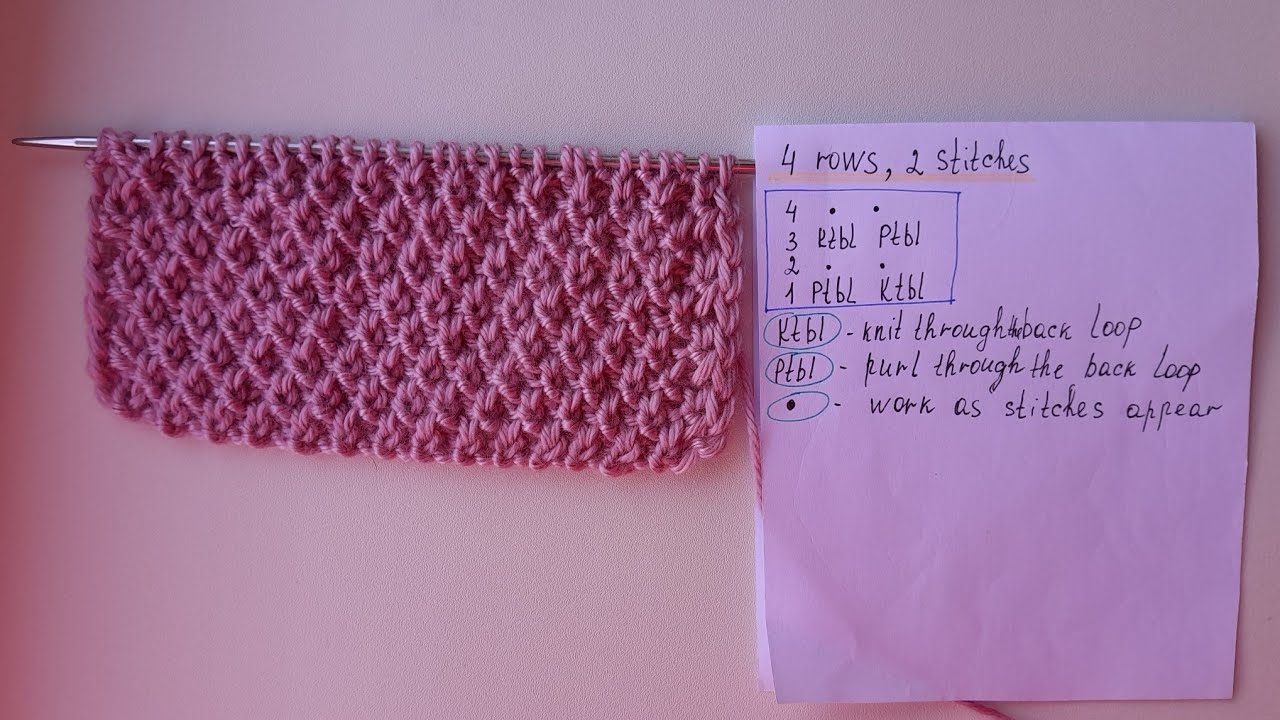 4 rows, 2 stitches
4 • •
3 Ktbl Ptbl
2 • •
1 Ptbl Ktbl
Ktbl - knit through the back loop
Ptbl - purl through the back loop
• - work as stitches appear